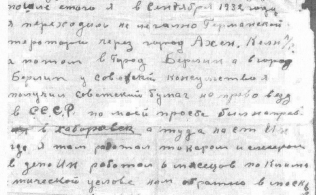 после этого я в Сентября 1932 году
я переходил не легално Германской
территори через город Ахен, Кельн
я потом в Город Берлин а в город
Берлин у Совоской консульства я
получил советский бумаг на право везд
в С.С.С.Р по моей просбе был направ
в Хабаровск а туда на ст Ин
где я там работал токаром и слесаром
в депо Ин работал 6 месяцов по Клима
тической услове нам обратно в Москв